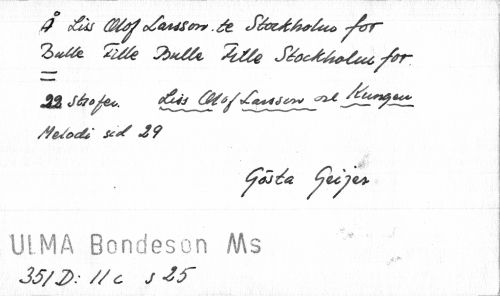 Å Liss Olof Larsson te Stockholm for
Bulle Fille Bulle Fille Stockholm for.
=
22 strofer. Liss Olof Larsson och Kungen
Melodi sid 29
Gösta Geijer
ULMA Bondeson Ms
351 D: 11 c s 25